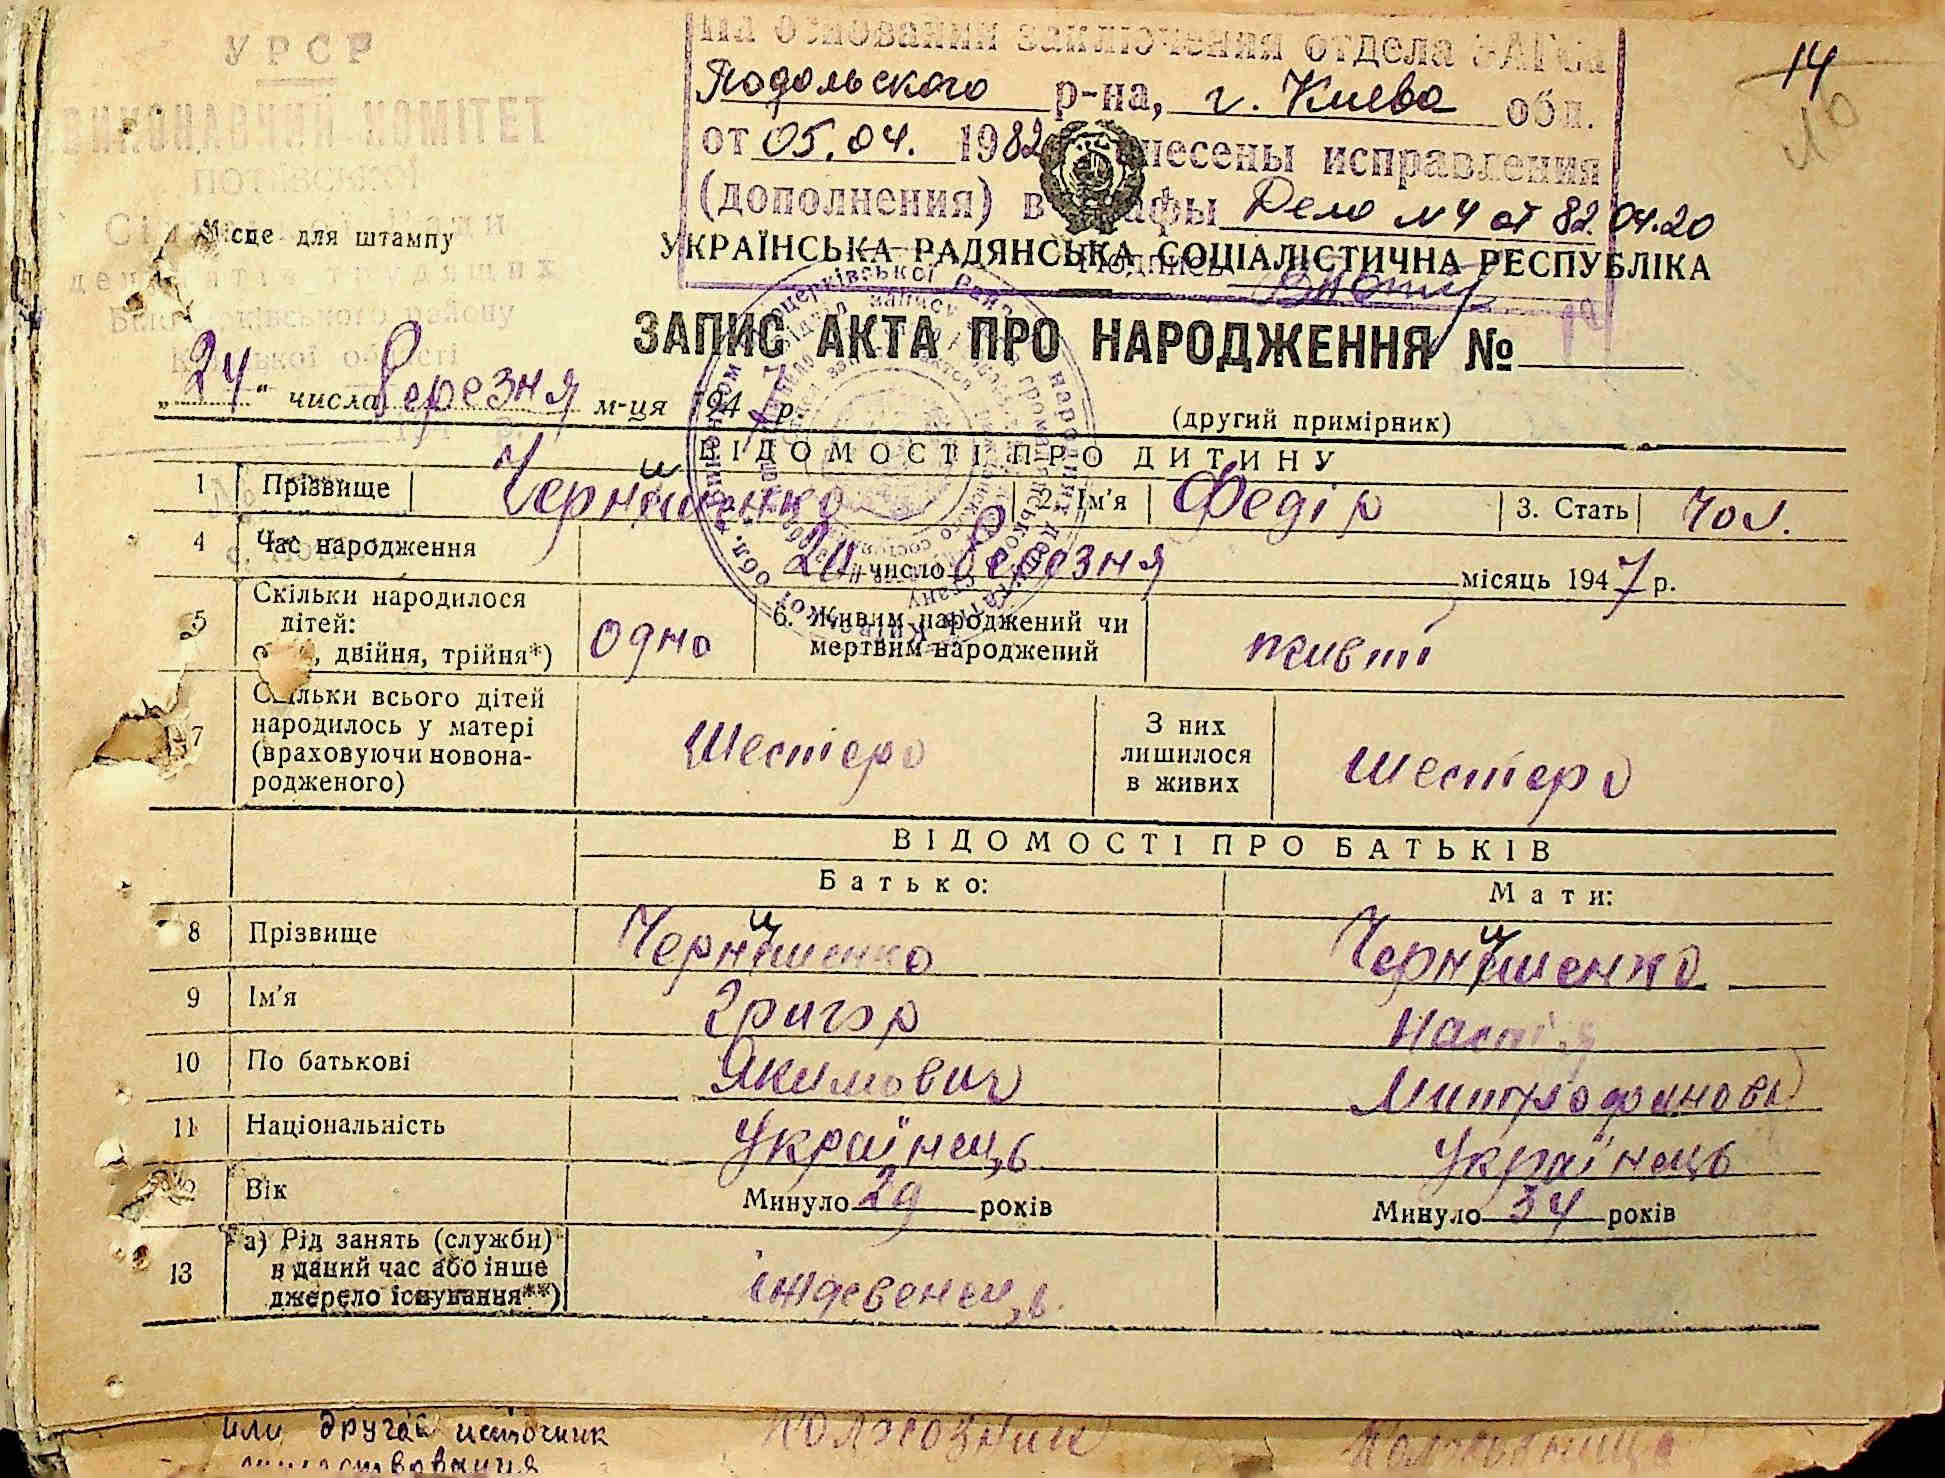 УРСР
ВИКОНАВЧИЙ КОМІТЕТ
Місце для штампу
На основании заключения отдела ЗАГСа
Подольского р-на, г. Киева обл.
от 05.04. 1982 внесены исправления
(дополнения) в графы Дело №4 от 82.04.20
Подпись
14
10
УКРАЇНСЬКА РАДЯНСЬКА СОЦІАЛІСТИЧНА РЕСПУБЛІКА
ЗАПИС АКТА ПРО НАРОДЖЕННЯ № 14
„24“ числа Березня м-ця 1947 р.
(другий примірник)
ВІДОМОСТІ ПРО ДИТИНУ
1 Прізвище Чернишенко 2. Ім'я Федір 3. Стать чол.
4 Час народження 20 число Березня місяць 1947 р.
5 Скільки народилося дітей: двійня, трійня*) одно 6. Живим народжений чи мертвим народжений живий
7 Скільки всього дітей народилось у матері (враховуючи новонародженого) Шестеро З них лишилося в живих шестеро
ВІДОМОСТІ ПРО БАТЬКІВ
Батько: Мати:
8 Прізвище Чернишенко Чернишенко
9 Ім'я Григор Настія
10 По батькові Якимович Митрофановна
11 Національність Українець Українець
Вік Минуло 29 років Минуло 34 років
13 а) Рід занять (служби) в даний час або інше джерело існування**) іждевенець
или другой источник колхозник
существования